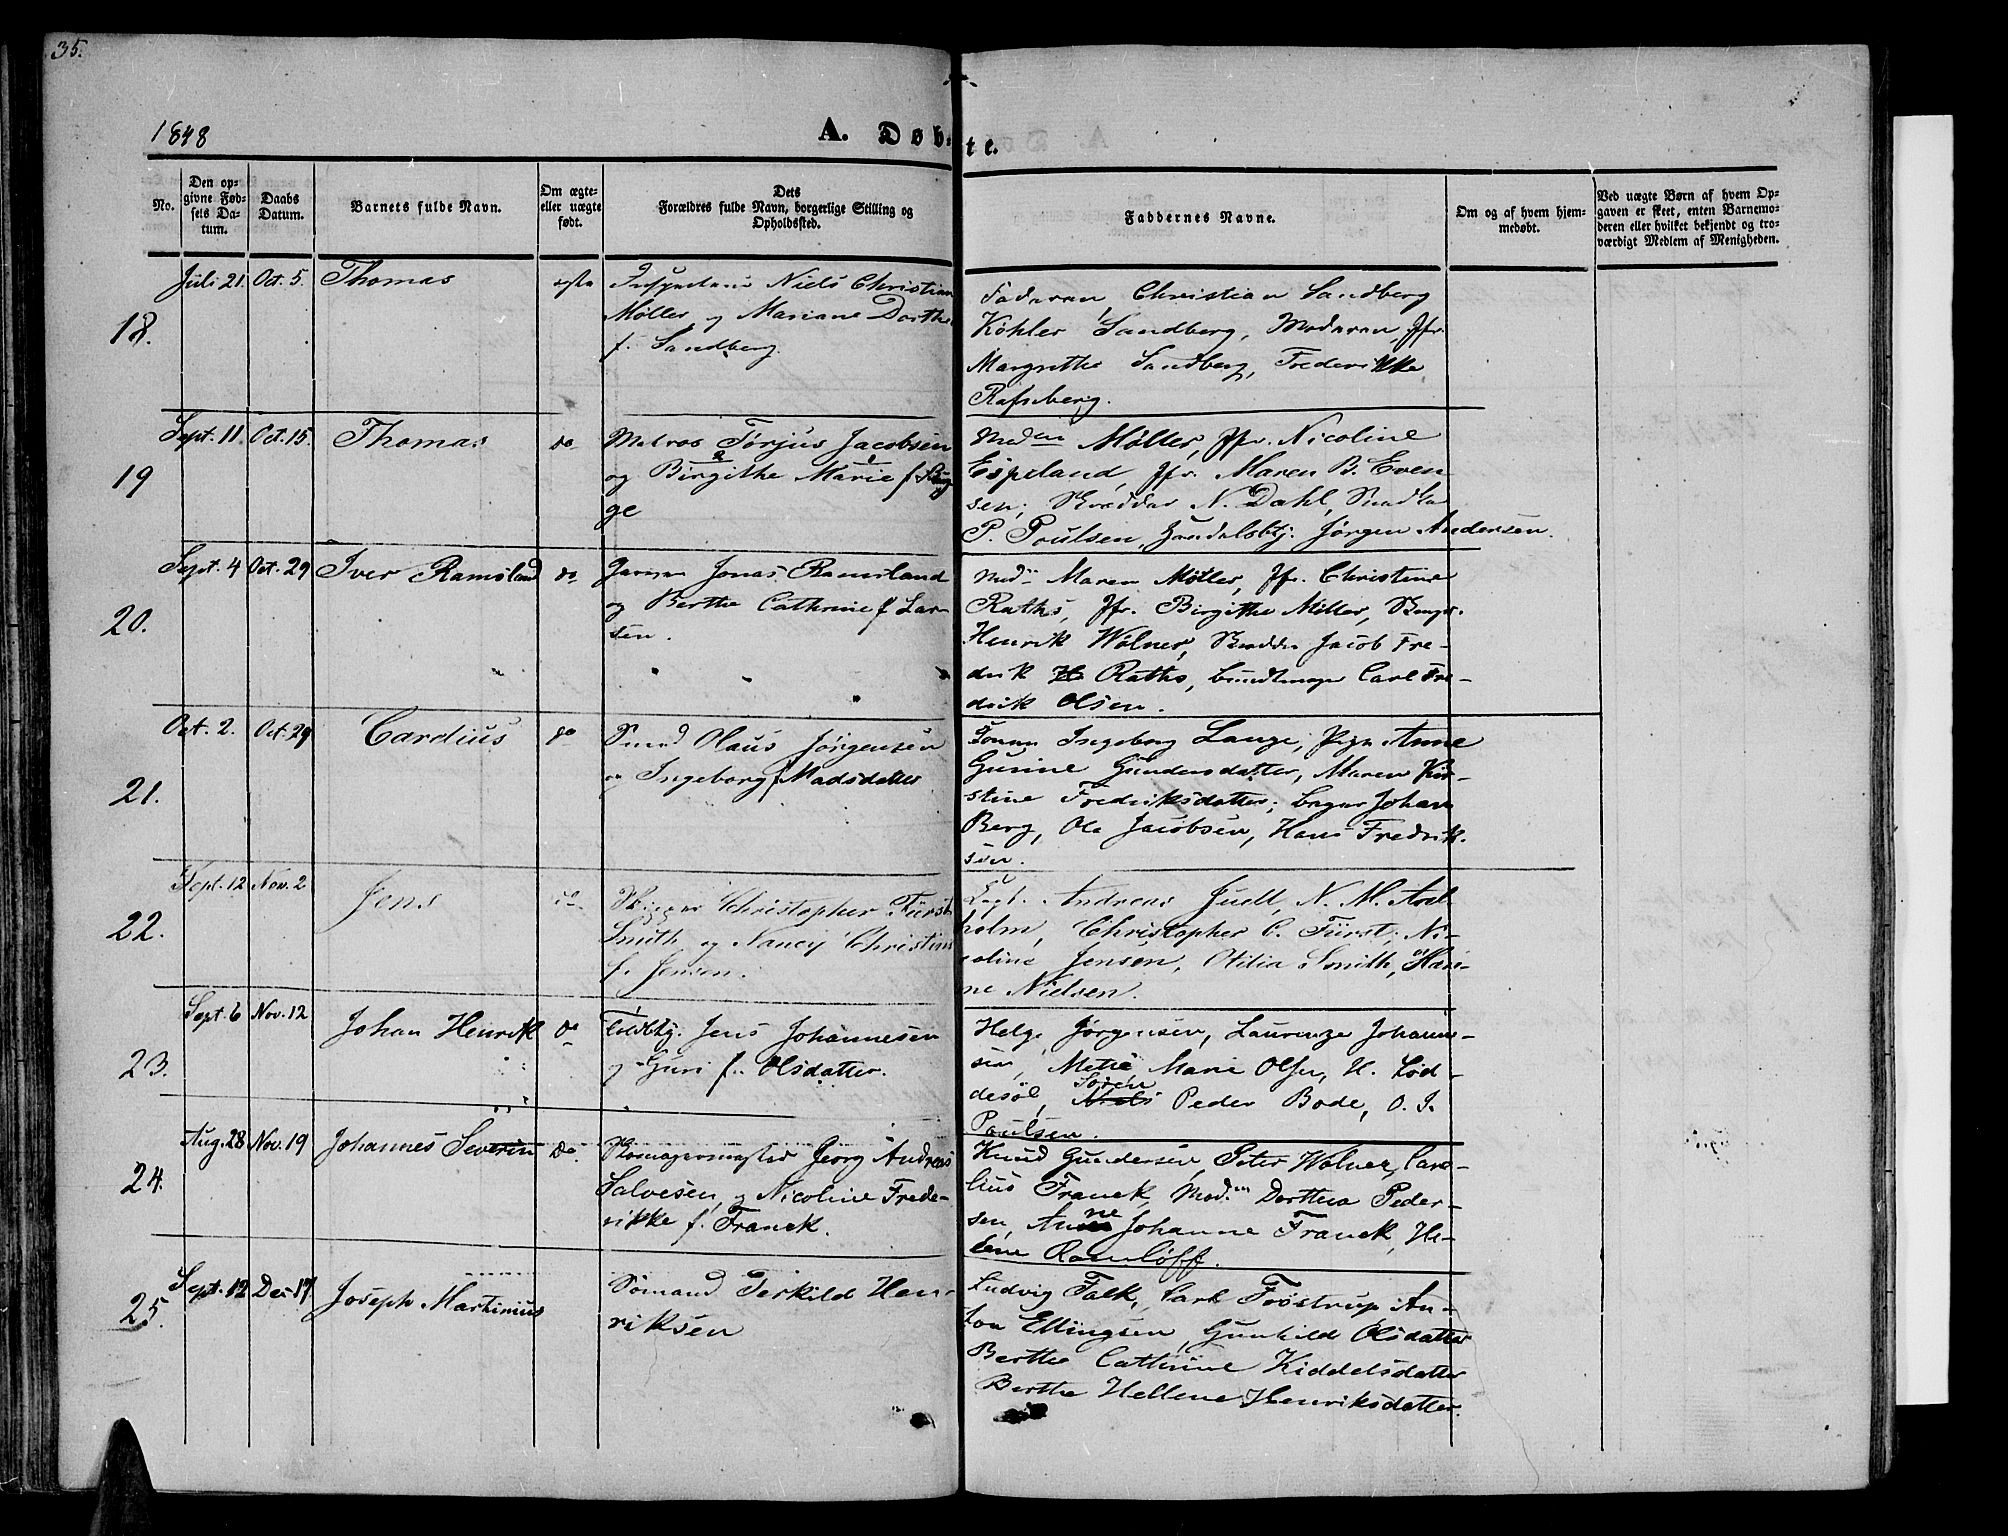 35.
1848
A. Døbte.
No.
Den op-
givne Fød-
sels Da-
tum.
Daabs
Datum.
Barnets fulde Navn.
Om ægte-
eller uægte
født.
Dets
Forældres fulde Navn, borgerlige Stilling og
Opholdssted.
Faddernes Navne.
Om og af hvem hjem-
medøbt.
Ved uægte Børn af hvem Op-
gaven er skeet, enten Barnemo-
deren eller hvilket bekjendt og tro-
værdigt Medlem af Menigheden.
18.
Juli 21.
Oct. 5.
Thomas
ægte
Niels Christian
Møller og Mariane Dorthe
f. Sandberg.
Faderen, Christian Sandberg
Köhler Sandberg, Moderen, Jfr.
Margrethe Sandberg, Frederikke
19
Sept. 11.
Oct. 15.
Thomas
do
Matros Törjus Jacobsen
og Birgithe Marie f.
ge
Mad Møller, Jfr. Nicoline
Espeland, Jfr. Maren B. Even
sen; Skrædder N. Dahl,
P. Poulsen, Handelsbtj. Jørgen Andersen.
20.
Sept. 4
Oct. 29
Iver Ramsland
do
Jonas Ramsland
og Berthe Cathrine f. Lar-
sen.
Mad Maren Møller, Jfr. Christine
Raths, Jfr. Birgithe Miller,
Henrik Wølner, Jacob Fre-
drik Raths, Carl Fre-
drik Olsen.
21.
Oct. 2.
Oct. 29
Cardius
do
Smed Olaus Jörgensen
og Ingeborg f. Madsdatter
Konen Ingeborg Lange, Pige Anne
Gurine Gundersdatter, Maren Kir-
stine Fredriksdatter; Bager Johan
Berg, Ole Jacobsen, Hans Fredrik-
sen.
22.
Sept. 12
Nov. 2
Jens
do
Skipper Christopher Fürst
Smith og Nancy Christine
f. Jensen.
Capt. Andreas Juell, N. M. Axel
holm, Christopher C. Fürst, Ni-
coline Jensen, Otilia Smith, Hani-
ne Nielsen.
23.
Sept. 6
Nov. 12
Johan Henrik
do
Toldbtj. Jens Johannesen
og Guri f. Olsdatter.
Helge Jörgensen, Laurenze Johann-
sen, Mette Marie Olsen, H. Lød-
desöl, Sören Peder Bode, O. J.
Poulsen.
24.
Aug. 28
Nov. 19
Johannes Severin
Do.
Skomagermester Georg Andreas
Salvesen, og Nicoline Frede-
rikke f. Franck.
Knud Gundersen, Peter Wølner, Caro-
lius Franck, Mad. Dorthea Peder-
sen, Anne Johanne Franck, He-
lene Ramløff.
25.
Sept. 12
Dec. 17
Joseph Martinius
Sömand Terkild Hen-
riksen
Ludvig Falk, Carl Fröstrup, An-
ton Ellingsen, Gunhild Olsdatter
Berthe Cathrine Kiddelsdatter
Berthe Hellene Henriksdatter.